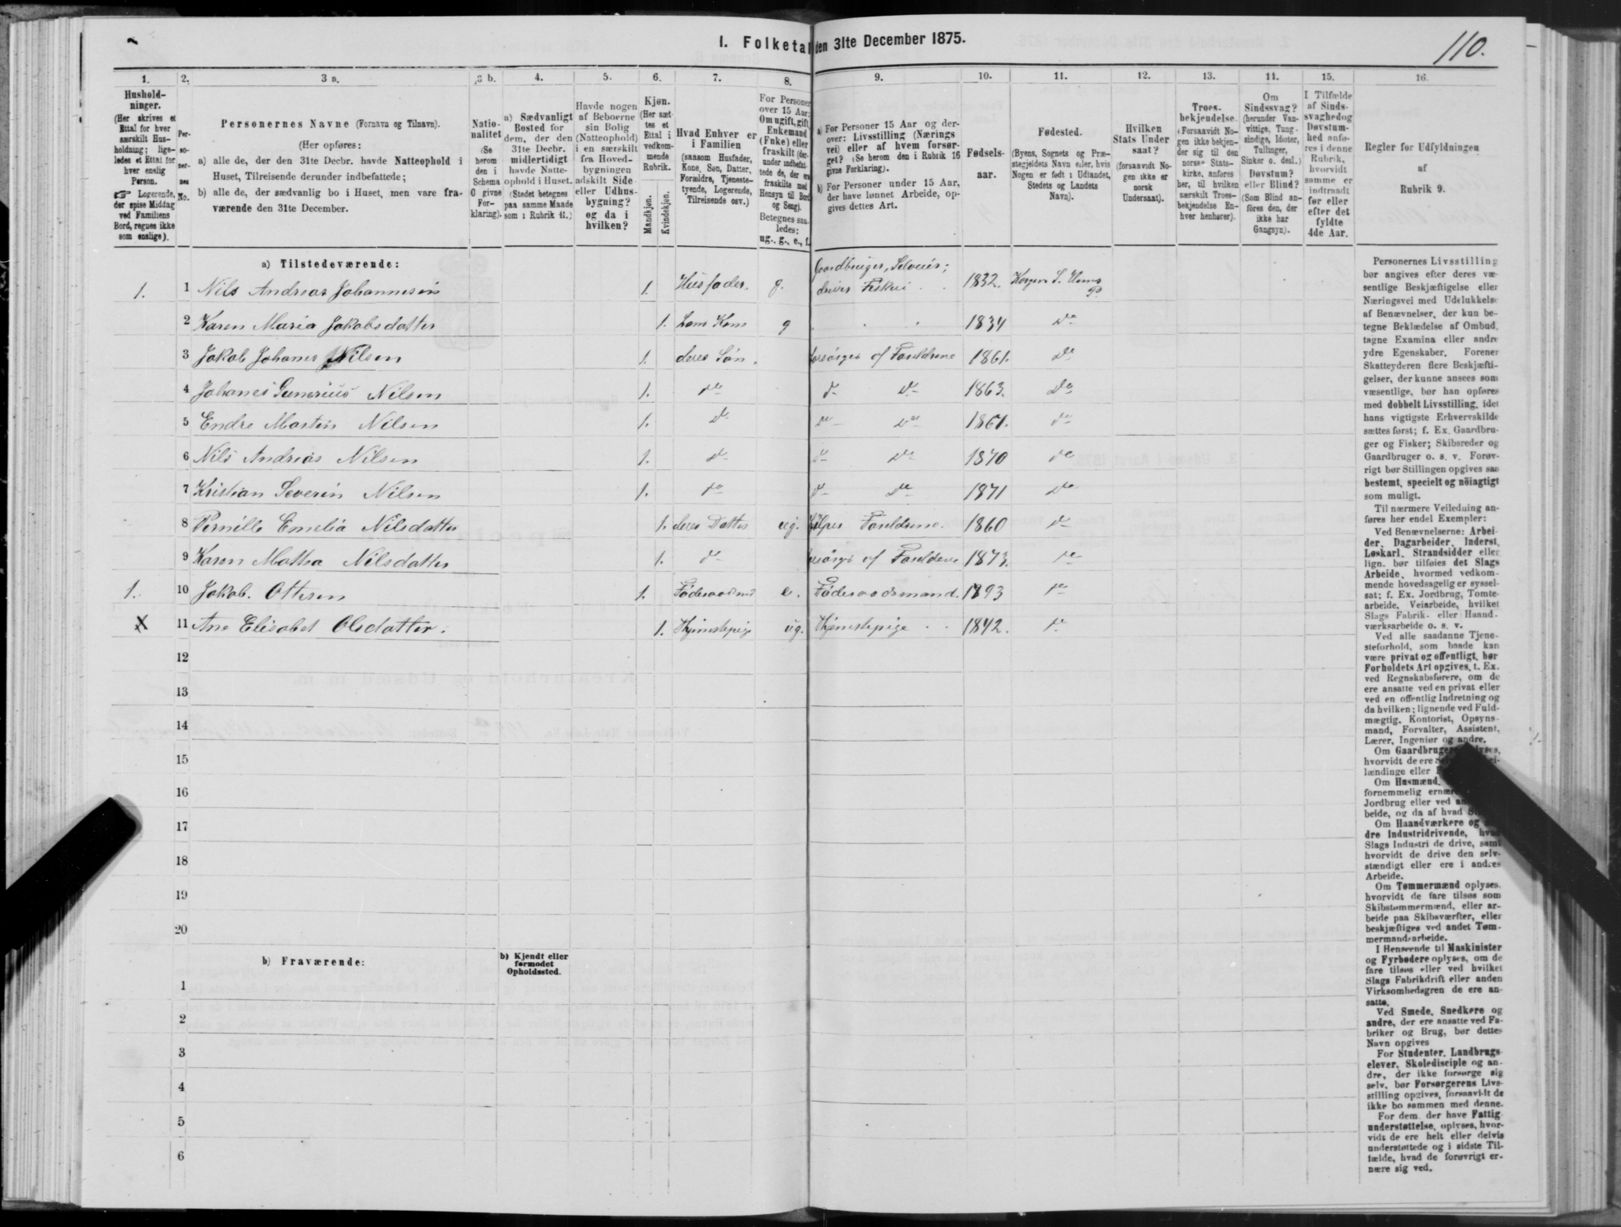 I. Folketal den 31te December 1875.
110.
1. 2. 3 a. 3 b. 4. 5. 6. 7. 8. 9. 10. 11. 12. 13. 14. 15. 16.
Hushold-
ninger.
(Her skrives et
Ettal for hver
særskilt Hus-
holdning; lige-
ledes et Ettal for
hver enslig
Person.
Logerende,
der spise Middag
ved Familiens
Bord, regnes ikke
som enslige).
Per-
so-
ner-
nes
No.
Personernes Navne (Fornavn og Tilnavn).
(Her opføres:
a) alle de, der den 31te Decbr. havde Natteophold i
Huset, Tilreisende derunder indbefattede;
b) alle de, der sædvanlig bo i Huset, men vare fra-
værende den 31te December.
Natio-
nalitet
(Se
herom
den i
Schema
O givne
For-
klaring).
a) Sædvanligt
Bosted for
dem, der den
31te Decbr.
midlertidigt
havde Natte-
ophold i Huset.
(Stedet betegnes
paa samme Maade
som i Rubrik 11.)
Havde nogen
af Beboerne
sin Bolig
(Natteophold)
i en særskilt
fra Hoved-
bygningen
adskilt Side
eller Udhus-
bygning?
og da i
hvilken?
Kjøn.
(Her sæt
tes et
Ettal i
vedkom-
mende
Rubrik.
Mandkjøn.
Kvindekjøn.
Hvad Enhver er
i Familien
(saasom Husfader,
Kone, Søn, Datter,
Forældre, Tjeneste-
tyende, Logerende,
Tilreisende osv.)
For Personer
over 15 Aar:
Om ugift, gift,
Enkemand
(Enke) eller
fraskilt
Betegnes saa-
ledes:
ug., g., e., f.
a) For Personer 15 Aar og der-
over: Livsstilling (Nærings
vei) eller af hvem forsør-
get? (Se herom den i Rubrik 16
givne Forklaring).
b) For Personer under 15 Aar,
der have lønnet Arbeide, op-
gives dettes Art.
Fødsels-
aar.
Fødested.
(Byens, Sognets og Præ-
stegjeldets Navn eller, hvis
Nogen er født i Udlandet,
Stedets og Landets
Navn).
Hvilken
Stats Under
saat?
(forsaavidt No-
gen ikke er
norsk
Undersaat).
Troes-
bekjendelse.
(Forsaavidt No-
gen ikke bekjen-
der sig til den
norske Stats-
kirke, anføres
her, til hvilken
særskilt Troes-
bekjendelse En-
hver henhører).
Om
Sindssvag?
(herunder Van-
vittige, Tung-
sindige, Idioter,
Tullinger,
Sinker o. desl.)
Døvstum?
eller Blind?
(Som Blind an-
føres den, der
ikke har
Gangsyn).
I Tilfælde
af Sinds-
svaghed og
Døvstum-
hed anfø-
res i denne
Rubrik,
hvorvidt
samme er
indtraadt
før eller
efter det
fyldte
4de Aar.
Regler for Udfyldningen
af
Rubrik 9.
a) Tilstedeværende:
1. 1 Nils Andreas Johannesen 1. Husfader. g. Gaardbruger, Selveier; driver Fiskeri 1832.
2 Karen Maria Jakobsdatter 1. hans Kone g 1834 do
3 Jakob Johanes Nilsen 1. deres Søn. forsørges af Forældrene 1861. do
4 Johanes Nilsen 1. do do do 1863. do
5 Endre Martin Nilsen 1. do do do 1867. do
6 Nils Andreas Nilsen 1. do do do 1870 do
7 Kristian Severin Nilsen 1. do do do 1871 do
8 Pernille Emelia Nilsdatter 1. deres Datter ug. hjelper Forældrene. 1860 do
9 Karen Nilsdatter 1. do forsørges af Forældrene 1873. do
1. 10 Jakob Ottesen 1. e. Føderaadsmand. 1793 do
X 11 Ane Elisabet Olsdatter. 1. ug. 1842. do
12
13
14
15
16
17
18
19
20
b) Fraværende:
b) Kjendt eller
formodet
Opholdssted.
1
2
3
4
5
6
Personernes Livsstilling
bør angives efter deres væ-
sentlige Beskjæftigelse eller
Næringsvei med Udelukkelse
af Benævnelser, der kun be-
tegne Beklædelse af Ombud,
tagne Examina eller andre
ydre Egenskaber. Forener
Skatteyderen flere Beskjæfti-
gelser, der kunne ansees som
væsentlige, bør han opføres
med dobbelt Livsstilling, idet
hans vigtigste Erhvervskilde
sættes først; f. Ex. Gaardbru-
ger og Fisker; Skibsreder og
Gaardbruger o. s. v. Forøv-
rigt bør Stillingen opgives saa
bestemt, specielt og nöiagtigt
som muligt.
Til nærmere Veiledning an-
føres her endel Exempler:
Ved Benævnelserne: Arbei-
der, Dagarbeider, Inderst,
Løskarl, Strandsidder eller
lign. bør tilføies det Slags
Arbeide, hvormed vedkom-
mende hovedsagelig er syssel-
sat; f. Ex. Jordbrug, Tomte-
arbeide, Veiarbeide, hvilket
Slags Fabrik- eller Haand-
værksarbeide o. s. v.
Ved alle saadanne Tjene-
steforhold, som baade kan
være privat og offentligt, bør
Forholdets Art opgives, t. Ex.
ved Regnskabsførere, om de
ere ansatte ved en privat eller
ved en offentlig Indretning og
da hvilken; lignende ved Fuld-
mægtig, Kontorist, Opsyns-
mand, Forvalter, Assistent,
Lærer, Ingeniør og andre.
Om Gaardbrugere
hvorvidt de ere
lændinge eller
Om Husmænd,
fornemmelig
Jordbrug eller ved
beide, og da af hvad
Om Haandværkere og
dre Industridrivende, hvad
Slags Industri de drive, samt
hvorvidt de drive den selv-
stændigt eller ere i andres
Arbeide.
Om Tømmermænd oplyses,
hvorvidt de fare tilsøs som
Skibstømmermænd, eller ar-
beide paa Skibsværfter, eller
beskjæftiges ved andet Tøm-
mermandsarbeide.
I Henseende til Maskinister
og Fyrbødere oplyses, om de
fare tilsøs eller ved hvilket
Slags Fabrikdrift eller anden
Virksomhedsgren de ere an-
satte.
Ved Smede, Snedkere og
andre, der ere ansatte ved Fa-
briker og Brug, bør dettes
Navn opgives
For Studenter, Landbrugs-
elever, Skoledisciple og an-
dre, der ikke forsørge sig
selv, bør Forsørgerens Livs-
stilling opgives, forsaavidt de
ikke bo sammen med denne.
For dem, der have Fattig-
understøttelse, oplyses, hvor-
vidt de ere helt eller delvis
understøttede og i sidste Til-
fælde, hvad de forøvrigt er-
nære sig ved.